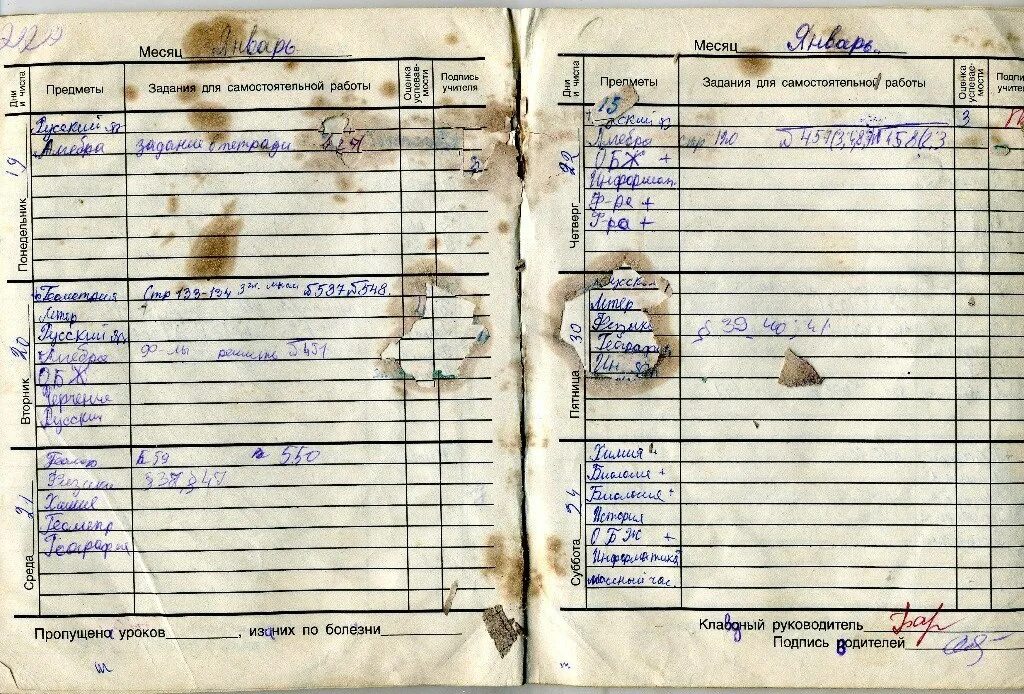 Месяц Январь
Дни и числа Предметы Задания для самостоятельной работы Оценка успеваемости Подпись учителя
Понедельник 19
Русский яз
Алгебра задание в тетради
Вторник 20
Геометрия Стр 133-134 §537 §548.
Литер
Русский яз
Алгебра Ф-лы решить §451
ОБЖ
Черчение
Русский
Среда 21
Геомет 550
Физика §37, §47
Химия
Геометр
География
Пропущено уроков, из них по болезни
Месяц Январь.
Дни и числа Предметы Задания для самостоятельной работы Оценка успеваемости Подпись учителя
Четверг 22
15
Русский яз 3
Алгебра стр 120
ОБЖ +
Информат.
Ф-ра +
Ф-ра +
Пятница 30
Русский
Литер
Физика § 39 40 41
География
Ин. яз
Суббота 24
Химия
Биология +
Биология +
История
ОБЖ +
Информатика
классный час.
Классный руководитель
Подпись родителей